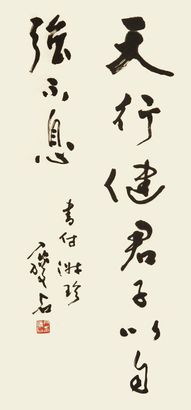 天行健君子以自
強不息
書付 淑珍